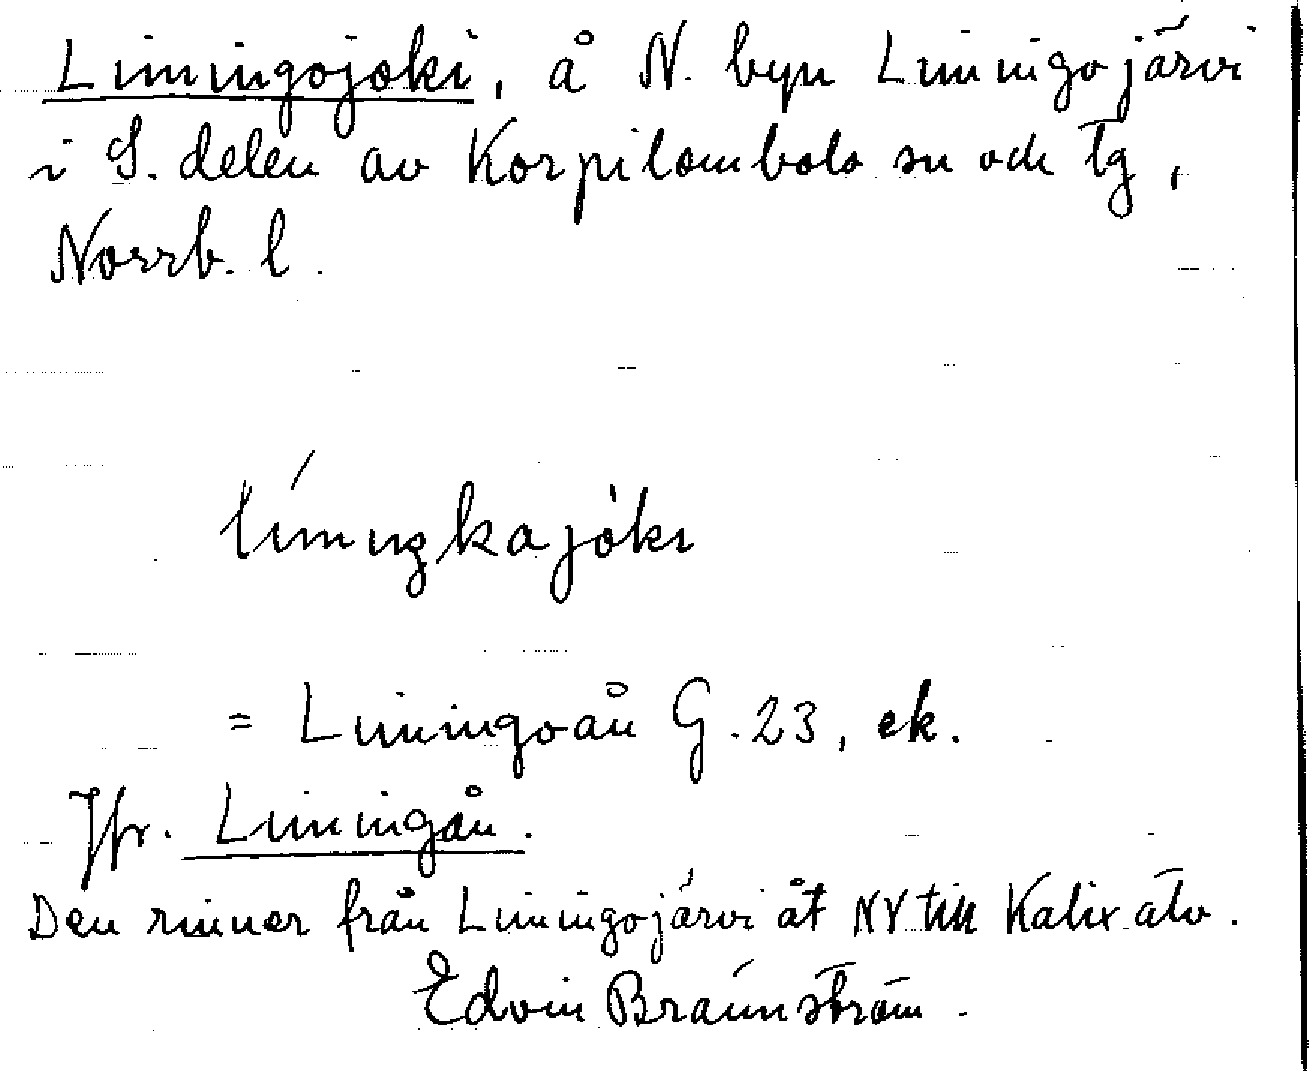 Liiningojoki, å N. byn Liiningojärvi
i S. delen av Korpilombolo sn och tg,
Norrb. l.
= Liiningoån G. 23, ek.
Jfr. Liiningån.
Den rinner från Liiningojärvi åt NV till Kalix älv.
Edvin Brännström.